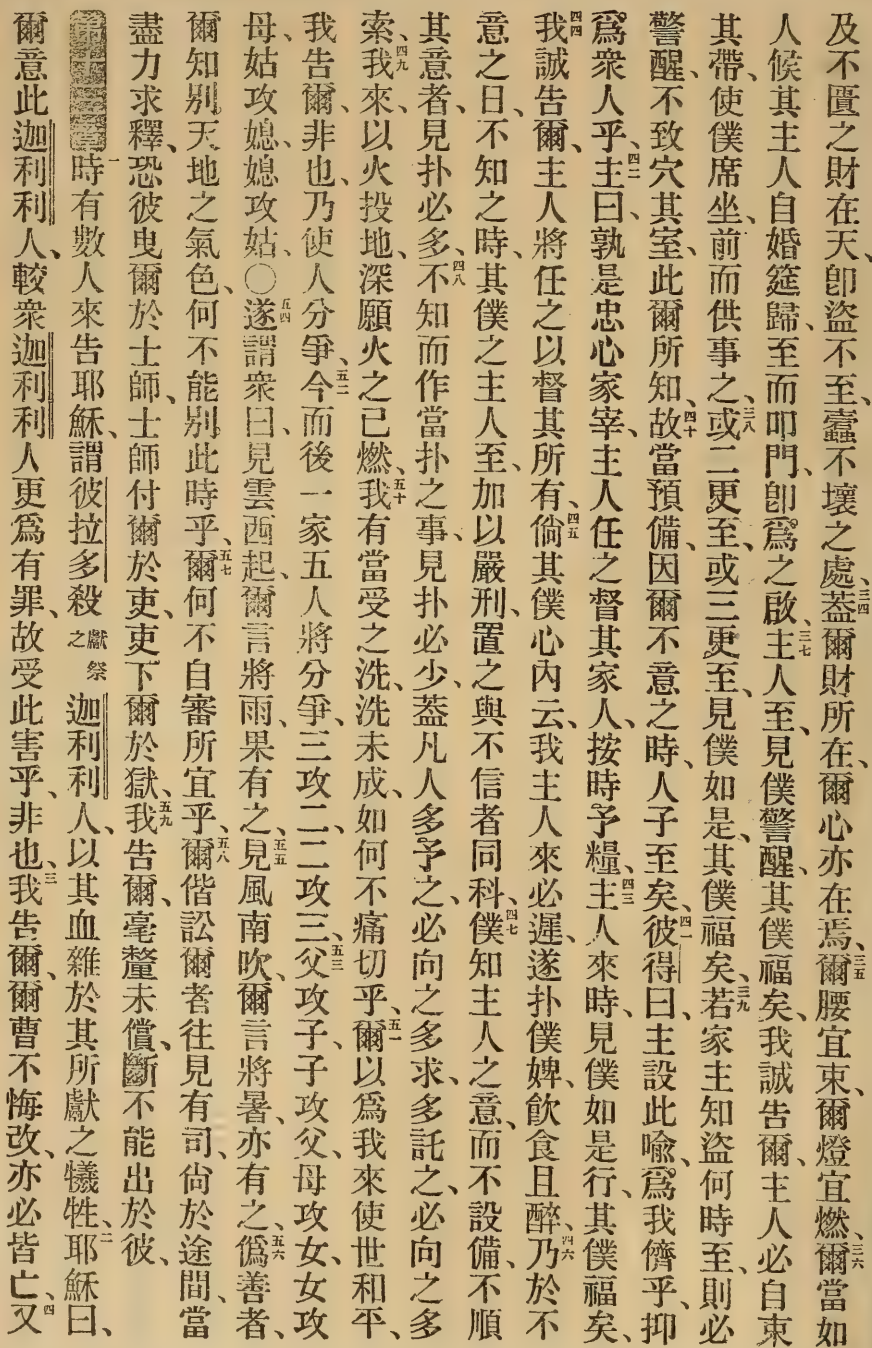 及不匱之財在天、卽盜不至、蠹不壞之處、三四蓋爾財所在、爾心亦在焉、三五爾腰宜束、爾燈宜燃、三六爾當如
人候其主人自婚筵歸、至而叩門、卽爲之啟、三七主人至、見僕警醒、其僕福矣、我誠告爾、主人必自束
其帶、使僕席坐、前而供事之、三八或二更至、或三更至、見僕如是、其僕福矣、三九若家主知盜何時至、則必
警醒、不致穴其室、此爾所知、四十故當預備、因爾不意之時、人子至矣、四一彼得曰、主設此喻、爲我儕乎、抑
爲衆人乎、四二主曰、孰是忠心家宰、主人任之督其家人、按時予糧、四三主人來時、見僕如是行、其僕福矣、
四四我誠告爾、主人將任之以督其所有、四五倘其僕心內云、我主人來必遲、遂扑僕婢、飲食且醉、四六乃於不
意之日、不知之時、其僕之主人至、加以嚴刑、置之與不信者同科、四七僕知主人之意、而不設備、不順
其意者、見扑必多、四八不知而作當扑之事、見扑必少、蓋凡人多予之、必向之多求、多託之、必向之多
索、四九我來、以火投地、深願火之已燃、五十我有當受之洗、洗未成、如何不痛切乎、五一爾以爲我來使世和平、
我告爾、非也、乃使人分爭、五二今而後一家五人將分爭、三攻二、二攻三、五三父攻子、子攻父、母攻女、女攻
母、姑攻媳、媳攻姑、〇五四遂謂衆曰、見雲西起、爾言將雨、果有之、五五見風南吹、爾言將暑、亦有之、五六僞善者、
爾知別天地之氣色、何不能別此時乎、五七爾何不自審所宜乎、五八爾偕訟爾者往見有司、尙於途間、當
盡力求釋、恐彼曳爾於士師、士師付爾於吏、吏下爾於獄、五九我告爾、毫釐未償、斷不能出於彼、
第十三章一時有數人來告耶穌、謂彼拉多殺獻祭之迦利利人、以其血雜於其所獻之犧牲、二耶穌曰、
爾意此迦利利人、較衆迦利利人更爲有罪、故受此害乎、三非也、我告爾、爾曹不悔改、亦必皆亡、四又